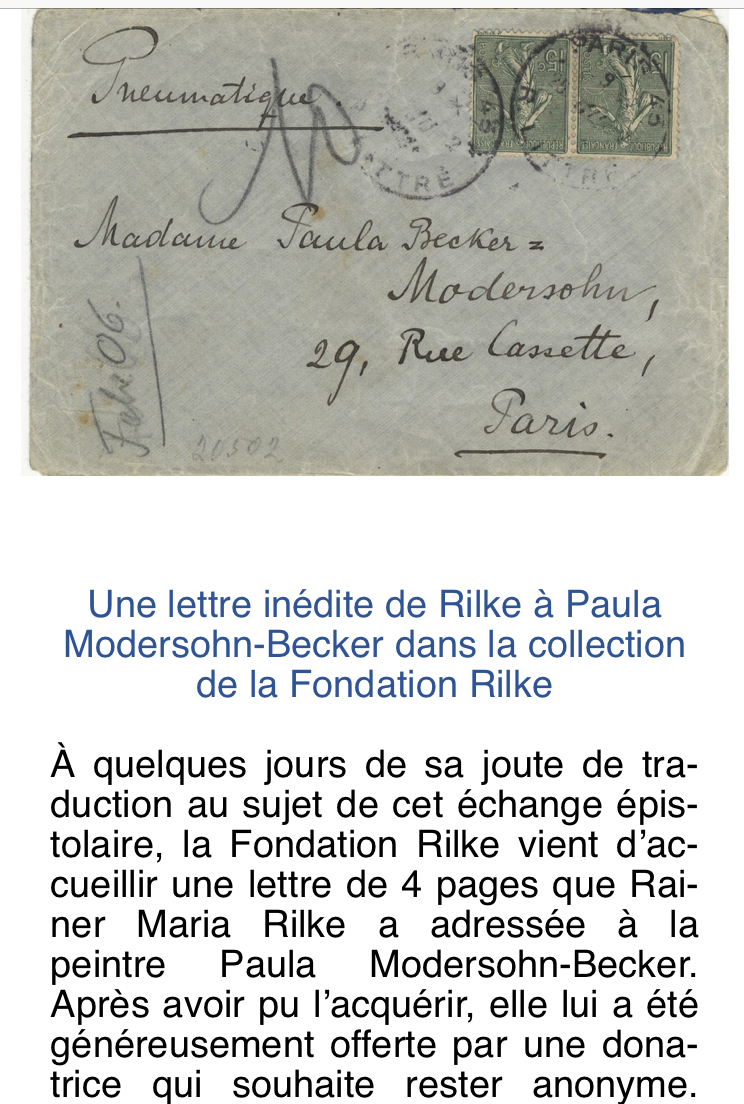 Pneumatique.
PARIS
Madame Paula Becker=
Modersohn,
29, Rue Cassette,
Paris.
Febr. 06.
20502
Une lettre inédite de Rilke à Paula
Modersohn-Becker dans la collection
de la Fondation Rilke
À quelques jours de sa joute de tra-
duction au sujet de cet échange épis-
tolaire, la Fondation Rilke vient d’ac-
cueillir une lettre de 4 pages que Rai-
ner Maria Rilke a adressée à la
peintre Paula Modersohn-Becker.
Après avoir pu l’acquérir, elle lui a été
généreusement offerte par une dona-
trice qui souhaite rester anonyme.